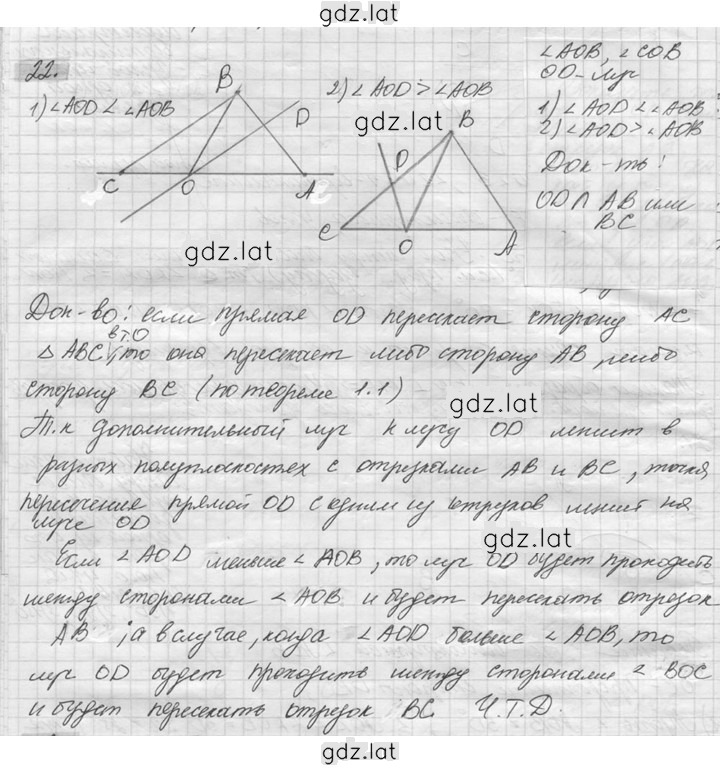 gdz.lat
22.
1) ∠AOD < ∠AOB
B
D
C
O
A
2) ∠AOD > ∠AOB
gdz.lat
B
D
C
O
A
gdz.lat
∠AOB, ∠COB
OD-луч
1) ∠AOD < ∠AOB
2) ∠AOD > ∠AOB
Док-ть:
OD ∩ AB или
BC
Док-во: если прямая OD пересекает сторону AC
в т.О
△ABC, то она пересекает либо сторону AB, либо
сторону BC (по теореме 1.1)
gdz.lat
Т.к дополнительный луч к лучу OD лежит в
разных полуплоскостях с отрезками AB и BC, точка
пересечения прямой OD с одним из отрезков лежит на
луче OD
gdz.lat
Если ∠AOD меньше ∠AOB, то луч OD будет проходить
между сторонами ∠AOB и будет пересекать отрезок
AB; а в случае, когда ∠AOD больше ∠AOB, то
луч OD будет проходить между сторонами ∠BOC
и будет пересекать отрезок BC. Ч.Т.Д.
gdz.lat